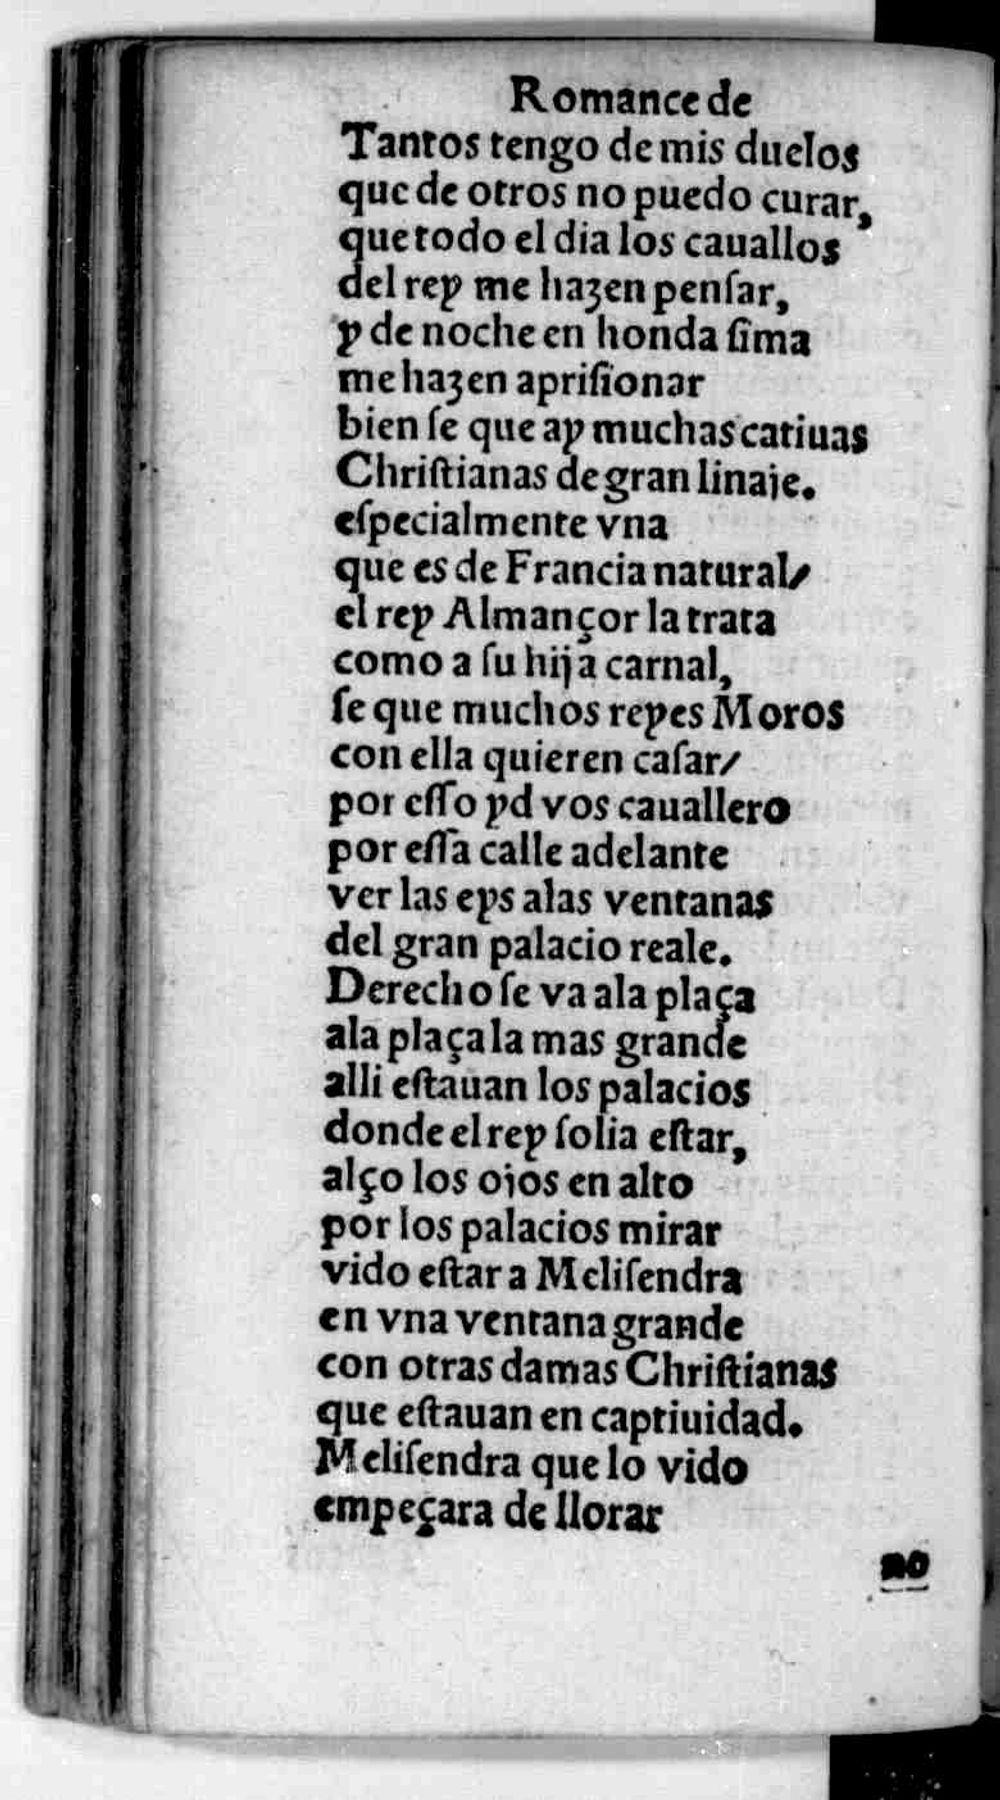 Romance de
Tantos tengo de mis duelos
que de otros no puedo curar,
que todo el dia los cauallos
del rey me hazen penſar,
y de noche en honda ſima
me hazen apriſionar
bien ſe que ay muchas catiuas
Chriſtianas de gran linaje.
eſpecialmente vna
que es de Francia natural/
el rey Almançor la trata
como a ſu hija carnal,
ſe que muchos reyes Moros
con ella quieren caſar/
por eſſo yd vos cauallero
por eſſa calle adelante
ver las eys alas ventanas
del gran palacio reale.
Derecho ſe va ala plaça
ala plaça la mas grande
alli eſtauan los palacios
donde el rey ſolia eſtar,
alço los ojos en alto
por los palacios mirar
vido eſtar a Meliſendra
en vna ventana grande
con otras damas Chriſtianas
que eſtauan en captiuidad.
Meliſendra que lo vido
empeçara de llorar
no